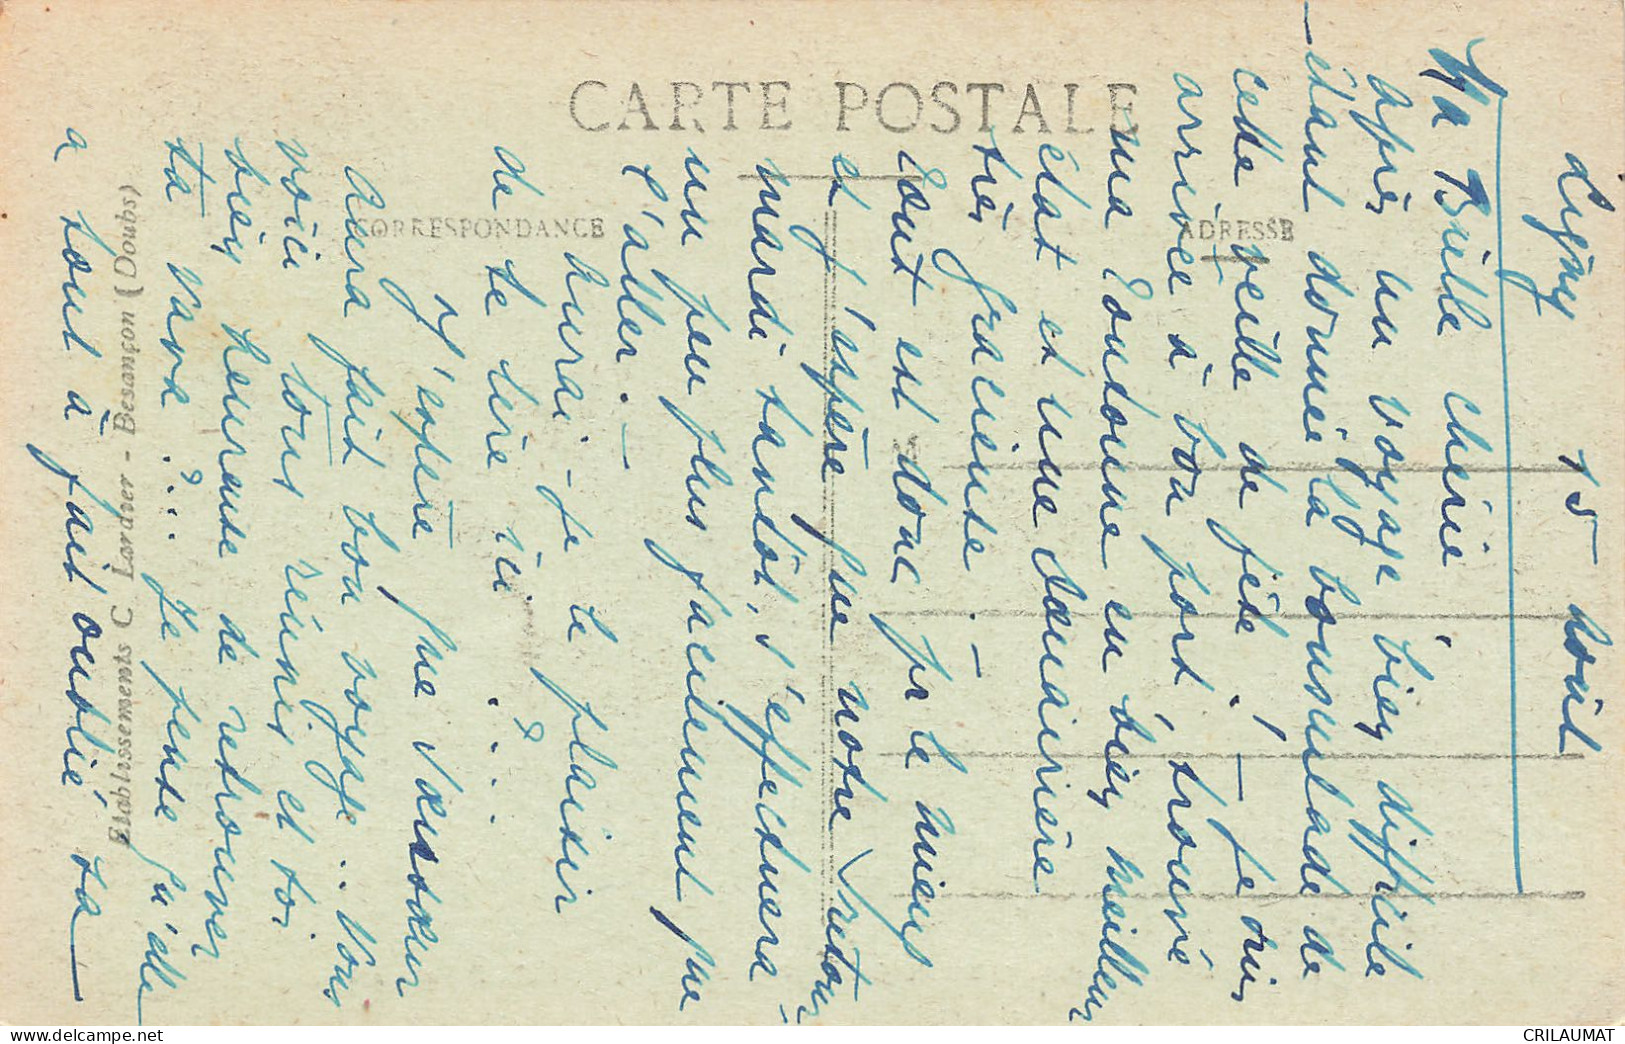 CARTE POSTALE
CORRESPONDANCE
ADRESSE
Etablissements C. Lardier - Besançon (Doubs)
Ligny 15 Août
Ma chérie
après un voyage bien difficile
étant donnée la bousculade de
cette veille de fête ! — je suis
arrivée à bon port trouvé
ma en bien meilleur
état et une
très gracieuse. —
tout est donc pr le mieux
et j'espère que notre
mardi tantôt, s'effectuera
un peu plus facilement que
l'aller. —
Aurai-je le plaisir
de te lire ici ? ....
J'espère que
aura fait bon voyage.. Vous
voici tous réunis et toi
bien heureuse de retrouver
ta ?... Je pense qu'elle
a tout à fait oublié sa